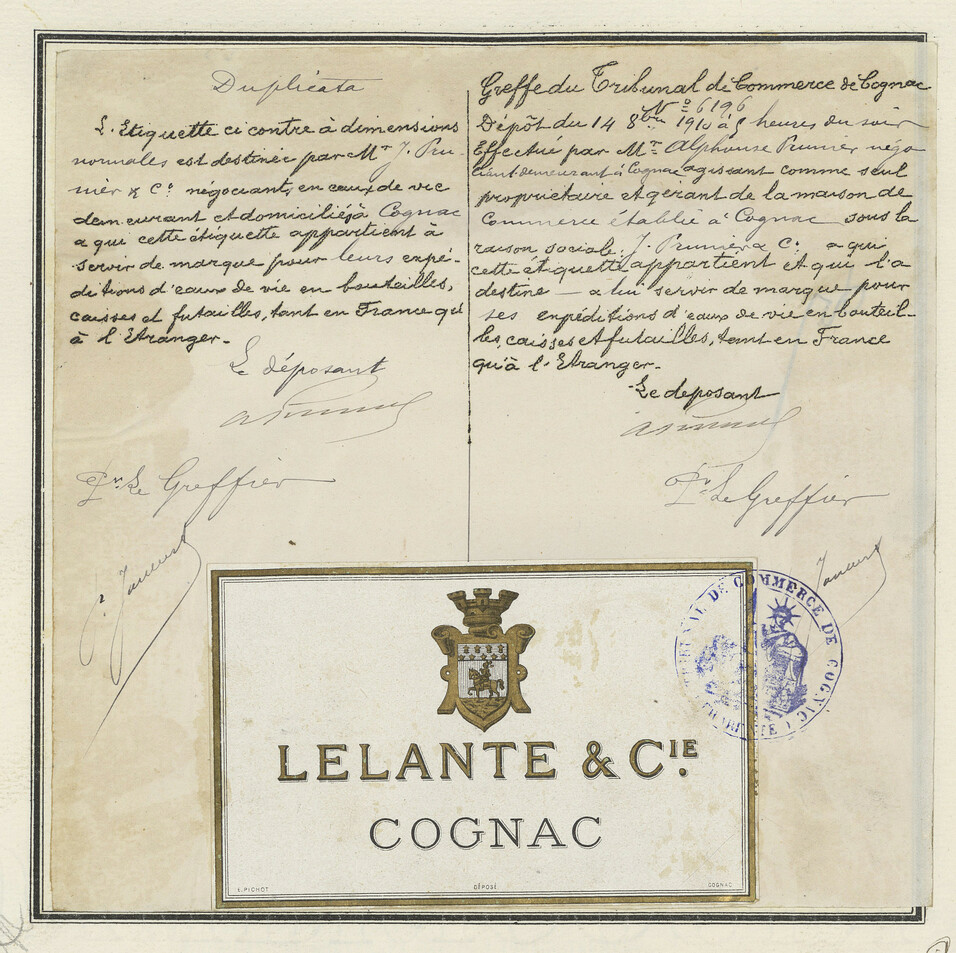 Duplicata
L'Etiquette ci contre à dimensions
normales est destinée par Mr J. Pru-
nier & Co négociants, en eaux de vie
demeurant et domiciliés à Cognac
a qui cette étiquette appartient à
servir de marque pour leurs expé-
ditions d'eaux de vie en bouteilles,
caisses et futailles, tant en France qu'
à l'Etranger.
Le déposant
Pr Le Greffier
Greffe du Tribunal de Commerce de Cognac
No 6196
Dépôt du 14 8bre 1910 à 5 heures du soir
Effectué par Mr Alphonse Prunier négo
ciant demeurant à Cognac agissant comme seul
propriétaire et gérant de la maison de
Commerce établie à Cognac sous la
raison sociale, J. Prunier & Co a qui
cette étiquette appartient et qui l'a
destine — a lui servir de marque pour
ses expéditions d'eaux de vie en bouteil-
les, caisses et futailles, tant en France
qu'à l'Etranger.
Le deposant
Pr Le Greffier
TRIBUNAL DE COMMERCE DE COGNAC
LELANTE & CIE.
COGNAC
E. PICHOT
DÉPOSÉ
COGNAC